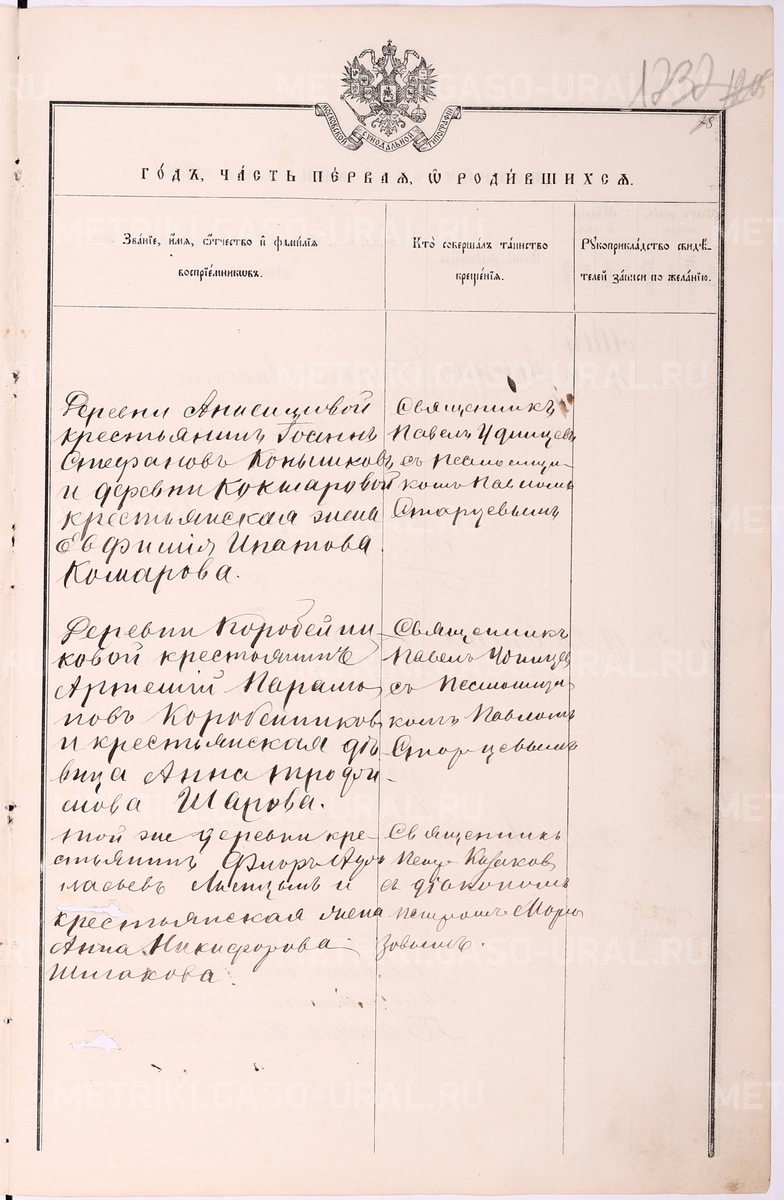 1232
МОСКОВСКОЙ СѴНОДАЛЬНОЙ ТИПОГРАФІИ
ГО́ДЪ, ЧА́СТЬ ПЕ́РВАЯ, Ѡ҆ РОДИ́ВШИХСЯ.
Зва́ніе, и҆́мя, ѻ҆́тчество и҆ фамилія
воспріе́мниковъ.
Кто̀ соверша́лъ та́инство
креще́нія.
Рꙋкоприкла́дство свидѣ́-
телей за́писи по жела́нію.
Деревни Анисимовой
крестьянинъ Іоаннъ
Стефановъ Конышковъ
и деревни Кокшаровой
крестьянская жена
Евфимія Ипатова
Комарова.
Священникъ
Павелъ Удинцевъ
съ псаломщи-
комъ Павломъ
Старцевымъ
Деревни Коробейни-
ковой крестьянинъ
Артемій Парамо
новъ Коробейниковъ
и крестьянская дѣ
вица Анна Трофи
мова Шарова.
Священникъ
Павелъ Удинцев
съ псаломщи
комъ Павломъ
Старцевымъ
той же деревни кре-
стьянинъ Флоръ
и
крестьянская жена
Анна Никифорова
Шмакова.
Священникъ
Петр Казаков
съ діакономъ
Петромъ Моро
зовымъ.
METRIKI.GASO-URAL.RU